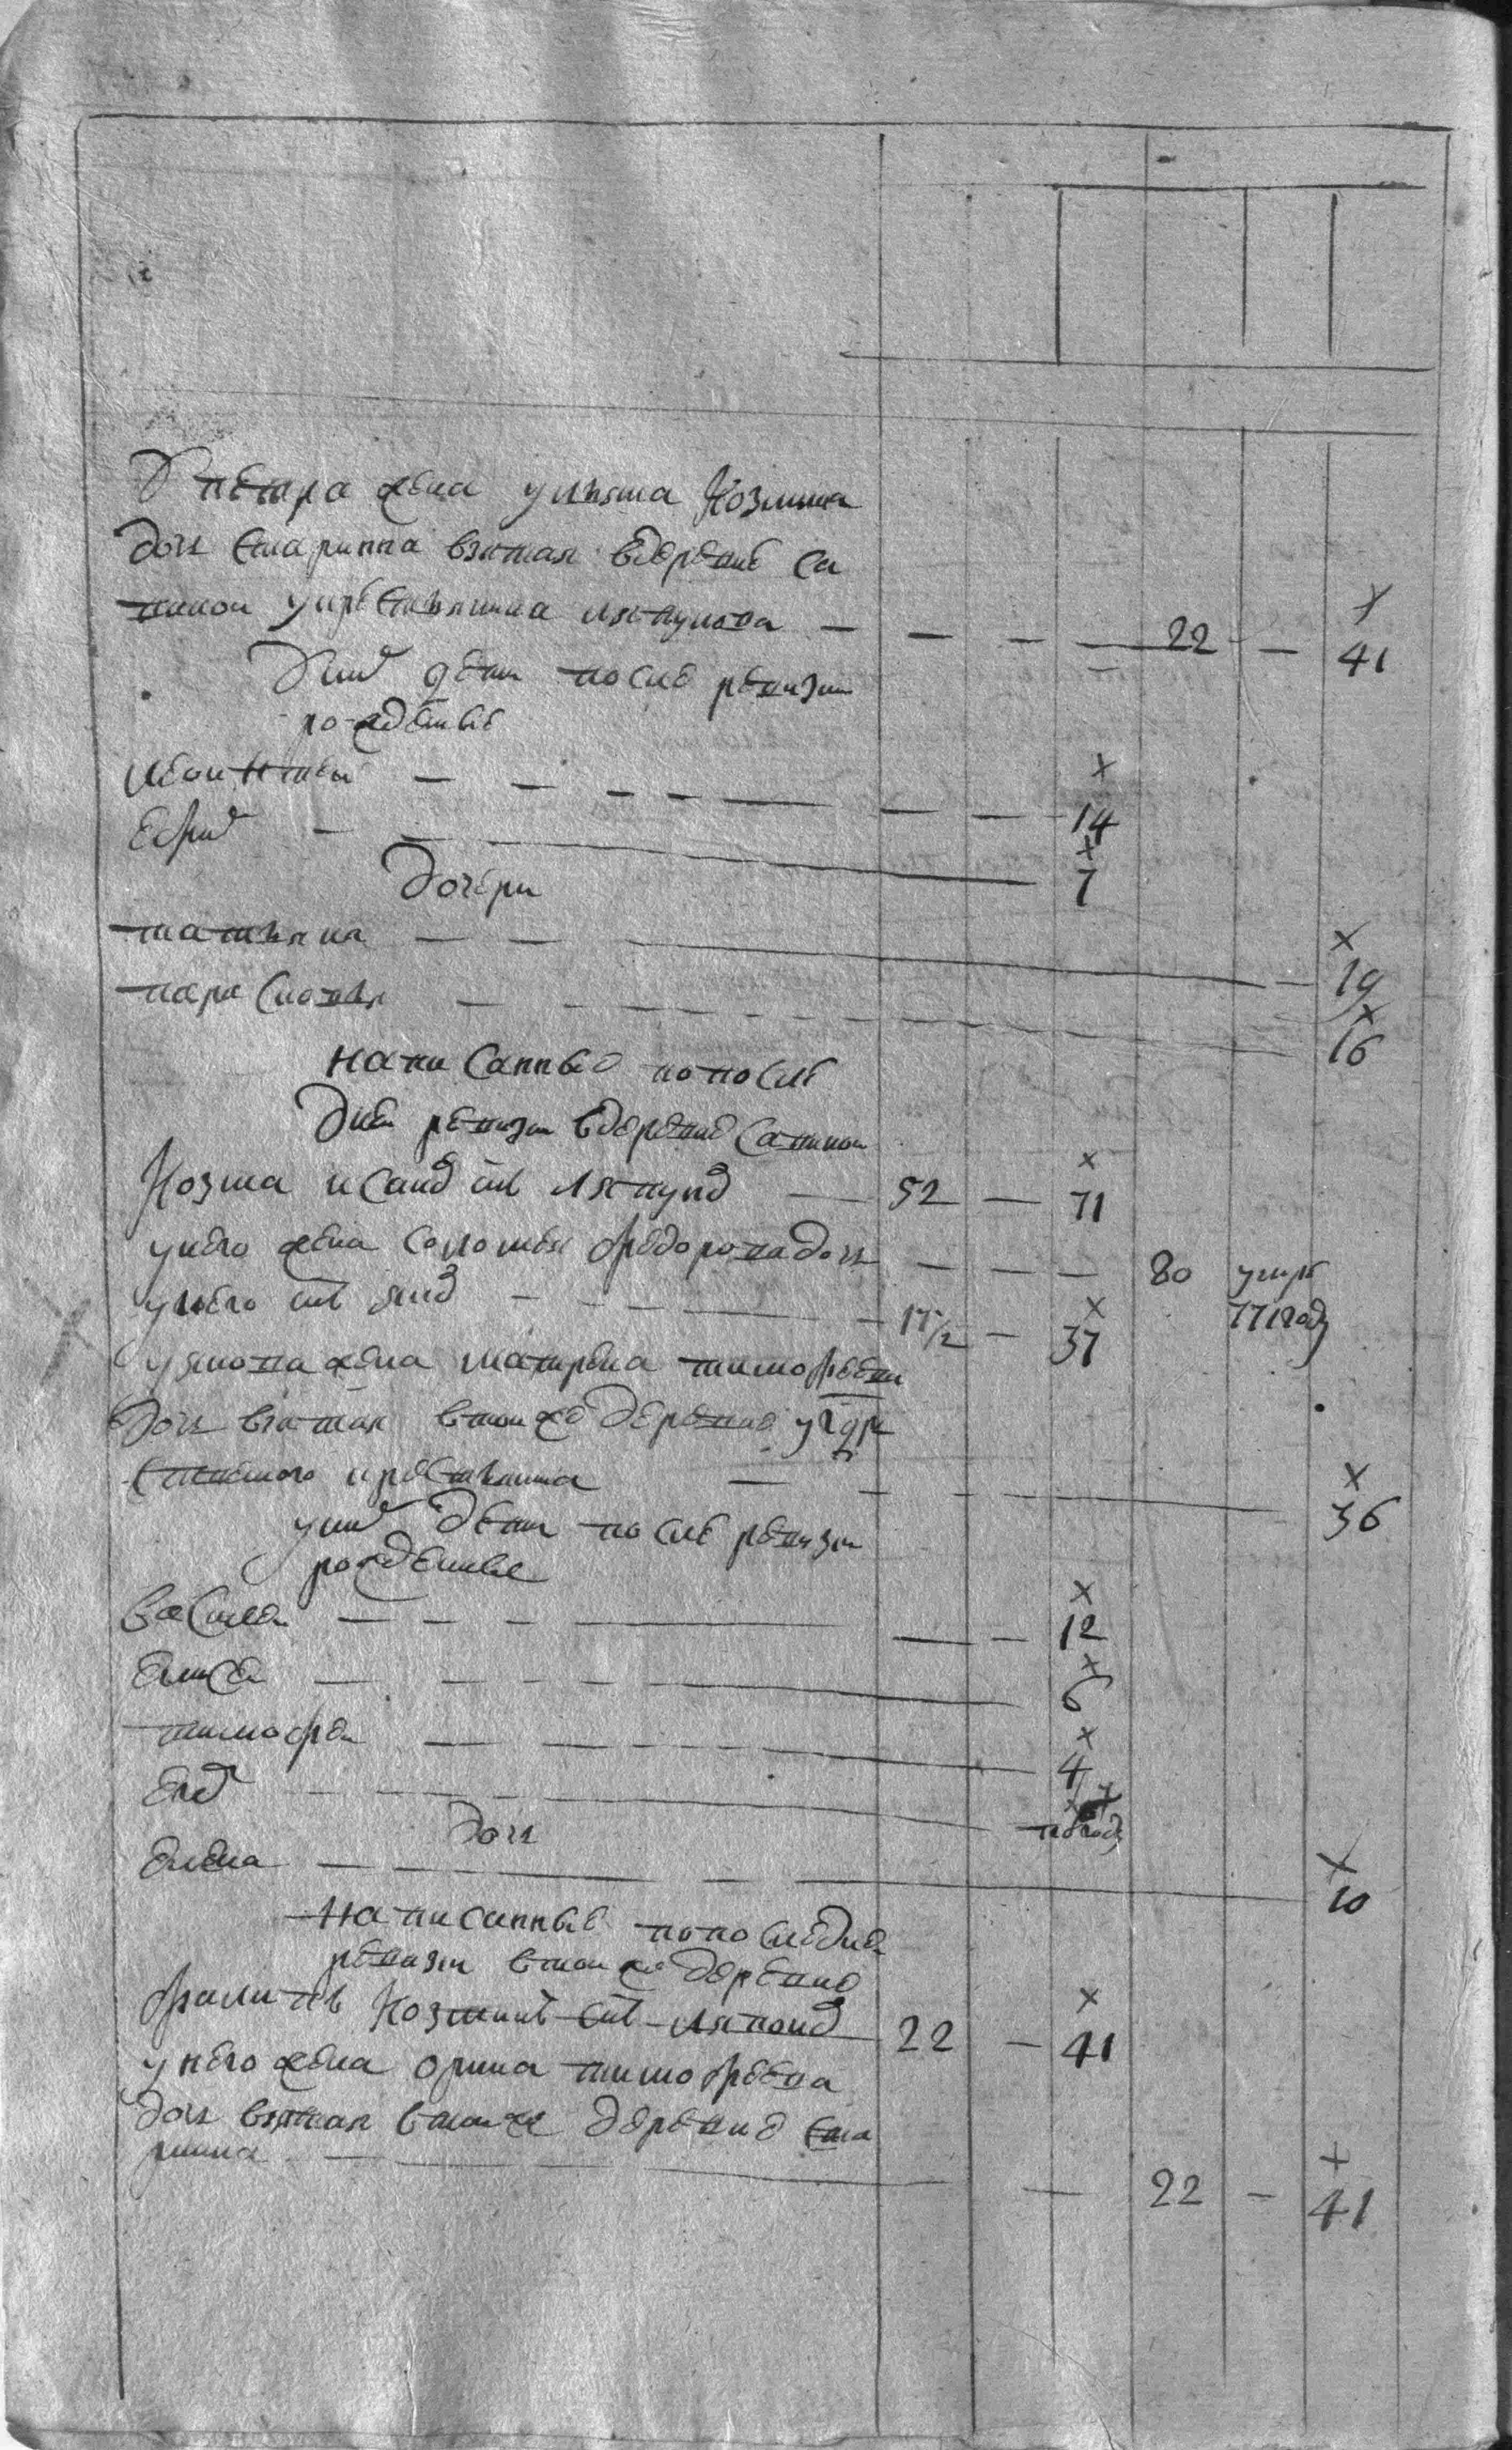 У петра жена ульяна Козмина
дочь старинна взятая вдеревне са
никои укрестьянина ляпунова — — — — 22 — 41
У них дети после ревизии
рожденые
леонтей — — — — — 14
Ефим — — 7
дочери
татьяна — — — 19
парасковья — — — 16
написанныя попосле
дней ревизии вдеревне саникои
Козма исаков снъ ляпунов — 52 — 71
унево жена соломея федорова дочь — — — 80 умре
унево снъ яков — — — 17 1/2 — 37 771 году
уякова жена матрена тимофеева
дочь взятая втои же деревне
крестьянина — — — 36
уних дети после ревизии
рожденые
василеи — — — — 12
елисеи — — — — 6
тимофеи — — — 4
— — —
дочь
елена — — — 10
написанные попоследнеи
ревизии втои же деревне
филипъ Козминъ снъ ляпонов 22 — 41
унево жена орина тимофеева
дочь взятая втои же деревне ста
ринна — — — 22 — 41